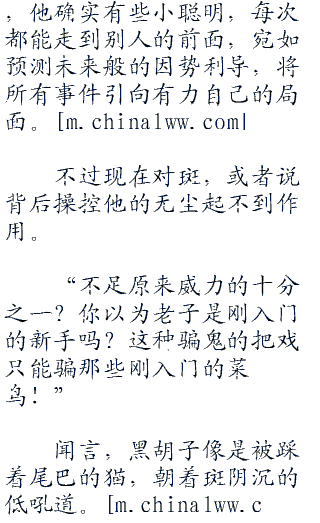 ，他确实有些小聪明，每次
都能走到别人的前面，宛如
预测未来般的因势利导，将
所有事件引向有力自己的局
面。[m.chinalww.com|
不过现在对斑，或者说
背后操控他的无尘起不到作
用。
“不足原来威力的十分
之一？你以为老子是刚入门
的新手吗？这种骗鬼的把戏
只能骗那些刚入门的菜
鸟！”
闻言，黑胡子像是被踩
着尾巴的猫，朝着斑阴沉的
低吼道。[m.chinalww.c